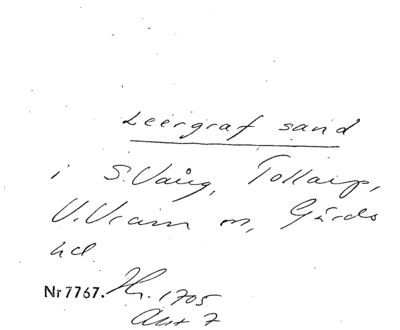 Leergraf sand
i S. Vång, Tollarp,
V. Vram m, Gärds
hd.
Nr 7767. Hr. 1705
Akt 7